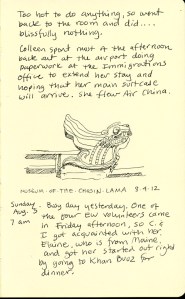 Too hot to do anything, so went
back to the room and did....
blissfully nothing.
Colleen spent most of the afternoon
back out at the airport doing
paperwork at the Immigrations
office to extend her stay and
hoping that her main suitcase
will arrive. She flew Air China.
MUSEUM-OF-THE-CHOIJIN-LAMA 3-4-12
Sunday, Aug. 5
7am
Busy day yesterday. One of
the four EW volunteers came
in Friday afternoon, so C. &
I got acquainted with her,
Elaine, who is from Maine,
and got her started out right
by going to Khan Buuz for
dinner.